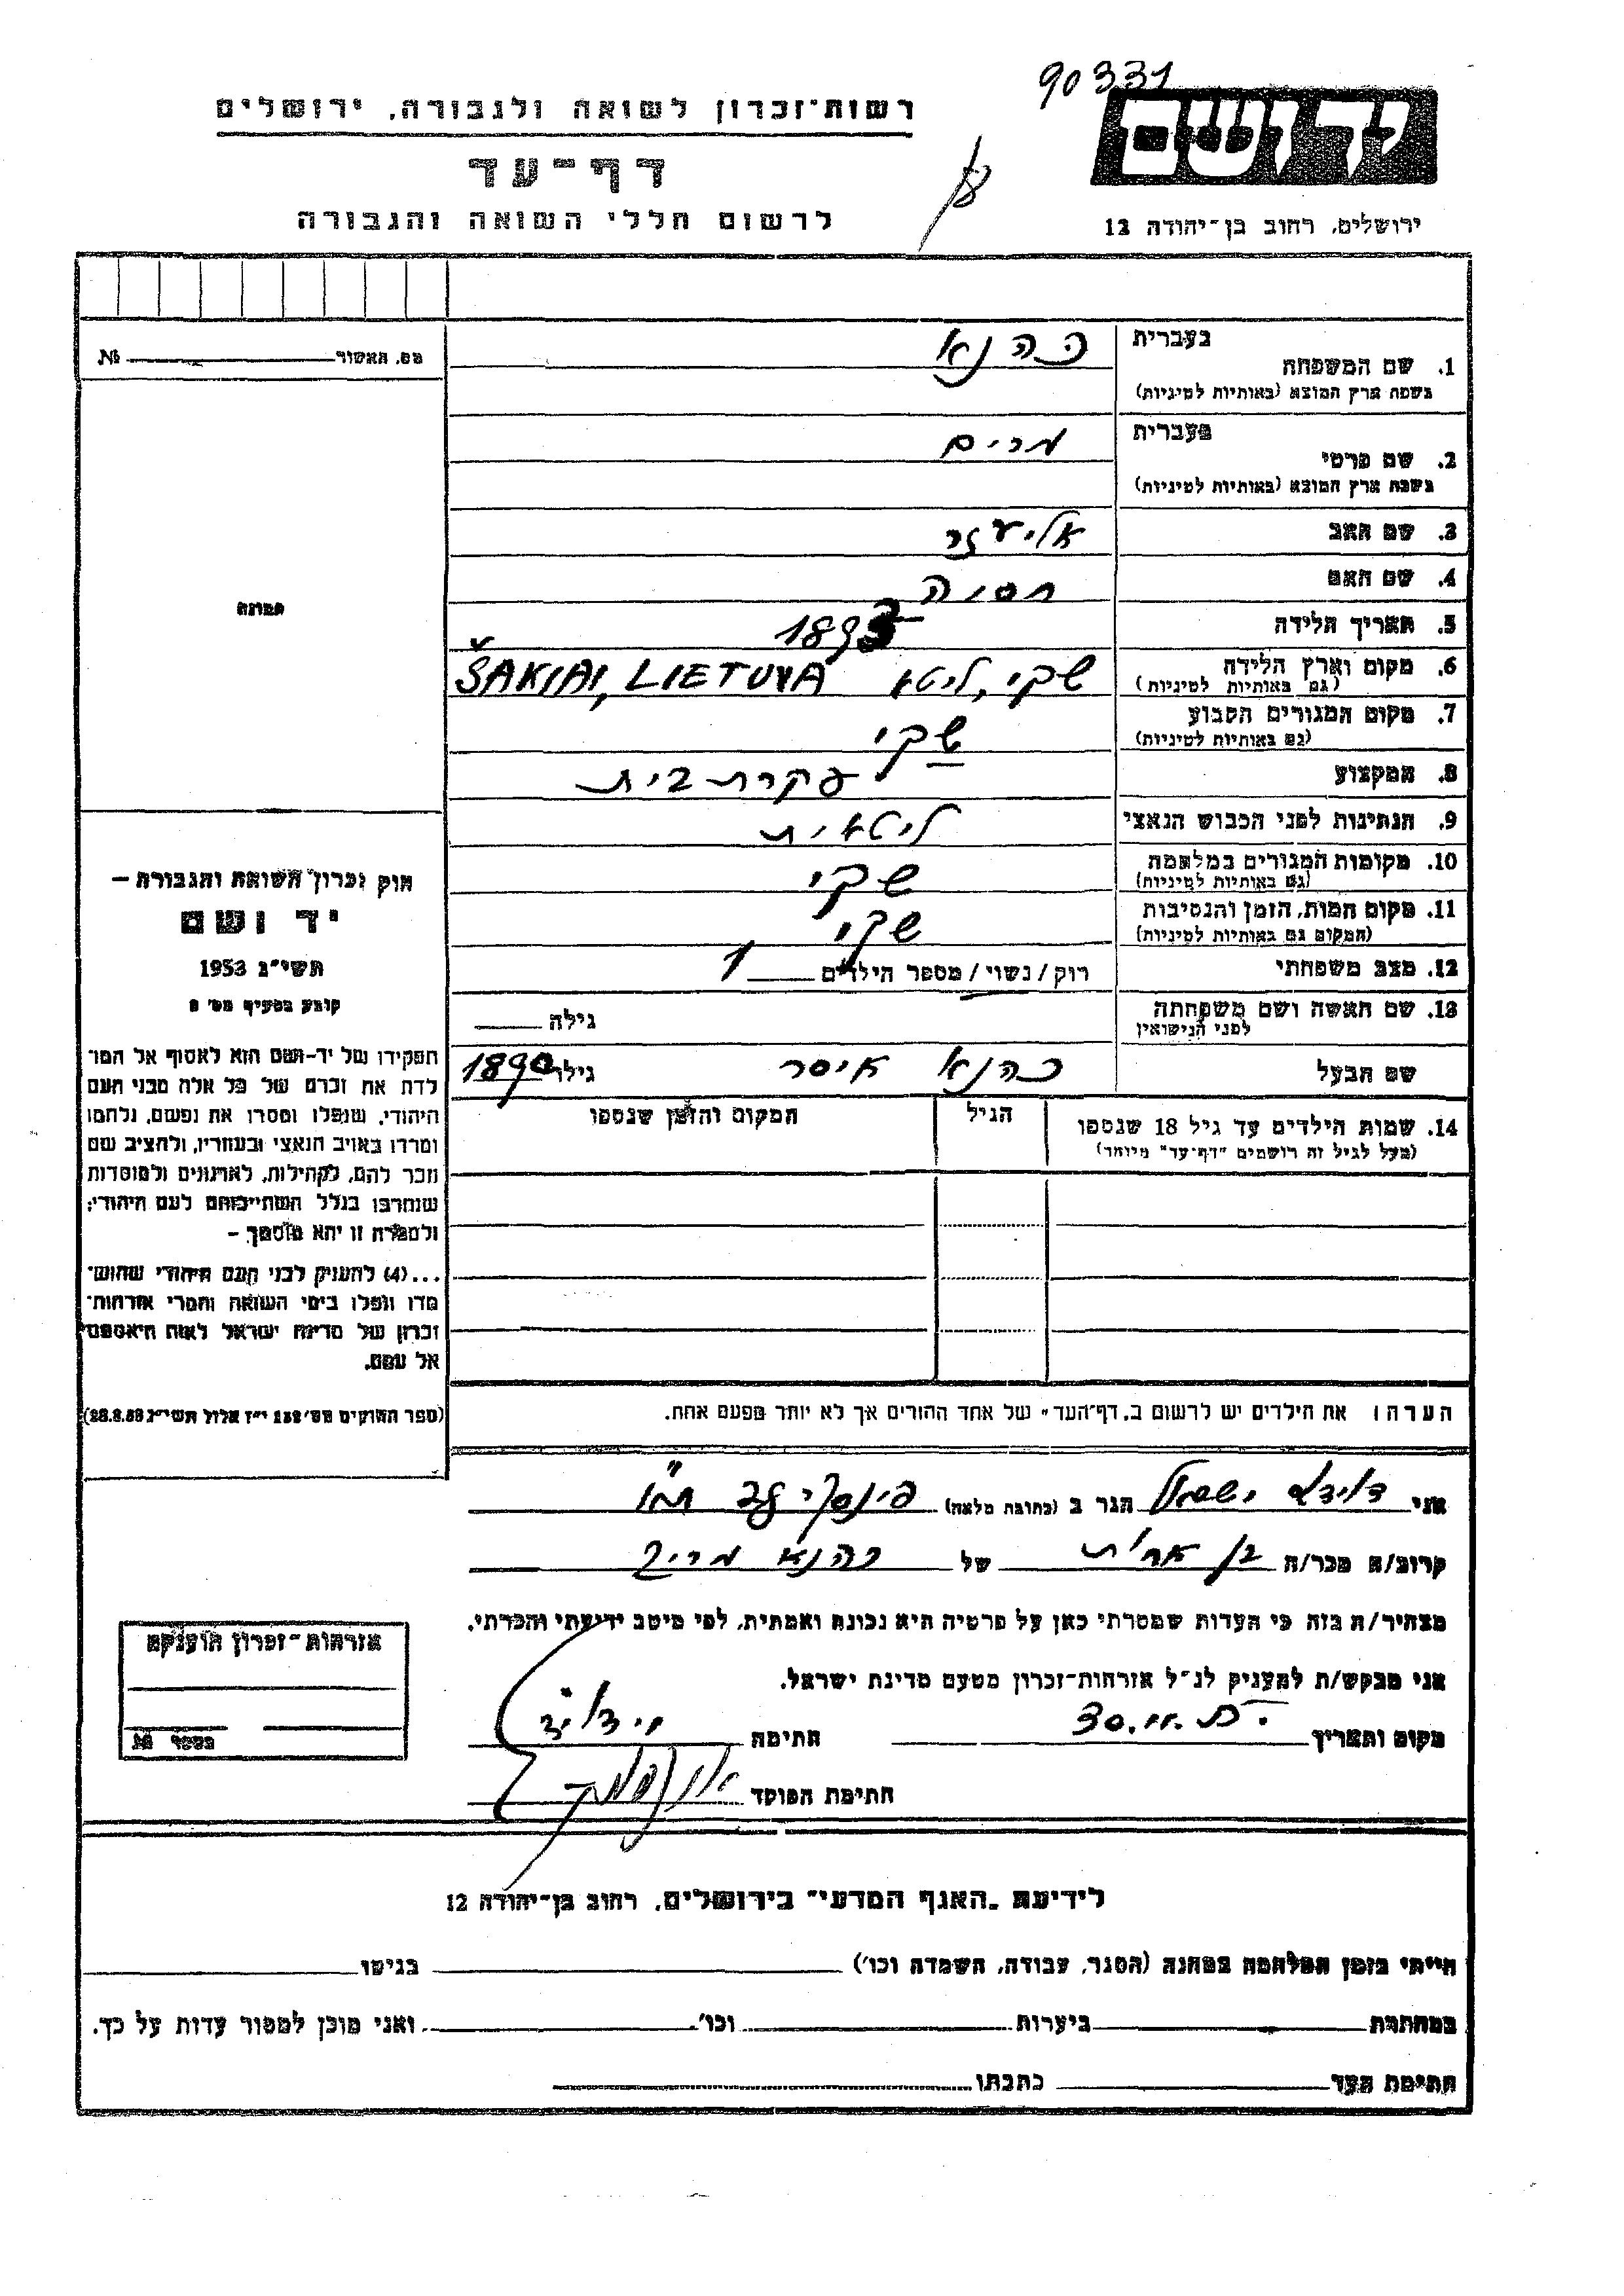 90331
רשות־זכרון לשואה ולגבורה, ירושלים
יד ושם
דף־עד
לרשום חללי השואה והגבורה
ירושלים, רחוב בן־יהודה 12
מס. האשור № 
1. שם המשפחה בעברית כהנא
בשפת ארץ המוצא (באותיות לטיניות)
2. שם פרטי בעברית מרים
בשפת ארץ המוצא (באותיות לטיניות)
3. שם האב אליעזר
4. שם האם חסיה
תמונה
5. תאריך הלידה 1893
6. מקום וארץ הלידה (גם באותיות לטיניות) שקי, ליטא ŠAKIAI, LIETUVA
7. מקום המגורים הקבוע (גם באותיות לטיניות) שקי
8. המקצוע עקרת בית
9. הנתינות לפני הכבוש הנאצי ליטאית
10. מקומות המגורים במלחמה (גם באותיות לטיניות) שקי
11. מקום המות, הזמן והנסיבות (המקום גם באותיות לטיניות) שקי
12. מצב משפחתי רוק / נשוי / מספר הילדים 1
13. שם האשה ושם משפחתה לפני הנישואין גילה
שם הבעל כהנא איסר גילו 1890
14. שמות הילדים עד גיל 18 שנספו הגיל המקום והזמן שנספו
(מעל לגיל זה רושמים "דף־עד" מיוחד)
חוק זכרון השואה והגבורה —
יד ושם
תשי"ג 1953
קובע בסעיף מס' 2
תפקידו של יד-ושם הוא לאסוף אל המו
לדת את זכרם של כל אלה מבני העם
היהודי, שנפלו ומסרו את נפשם, נלחמו
ומרדו באויב הנאצי ובעוזריו, ולהציב שם
וזכר להם, לקהילות, לארגונים ולמוסדות
שנחרבו בגלל השתייכותם לעם היהודי;
ולמטרה זו יהא מוסמך —
...(4) להעניק לבני העם היהודי שהוש־
מדו ונפלו בימי השואה והמרי אזרחות־
זכרון של מדינת ישראל לאות היאספם
אל עמם.
(ספר החוקים מס' 132 י"ז אלול תשי"ג 28.8.53)
הערה: את הילדים יש לרשום ב"דף־העד" של אחד ההורים אך לא יותר מפעם אחת.
אני דוידא ישראל הגר ב (כתובת מלאה) פינסקי ת"א
קרוב/ה מכר/ה בן אחות של כהנא מרים
מצהיר/ה בזה כי העדות שמסרתי כאן על פרטיה היא נכונה ואמתית, לפי מיטב ידיעתי והכרתי.
אני מבקש/ת להעניק לנ"ל אזרחות־זכרון מטעם מדינת ישראל.
מקום ותאריך חתימה
חתימת הפוקד
אזרחות־זכרון הוענקה
בספר №
לידיעת "האגף המדעי" בירושלים, רחוב בן־יהודה 12
הייתי בזמן המלחמה במחנה (הסגר, עבודה, השמדה וכו') בגיטו
במחתרת ביערות וכו' ואני מוכן למסור עדות על כך.
חתימת העד כתבתו